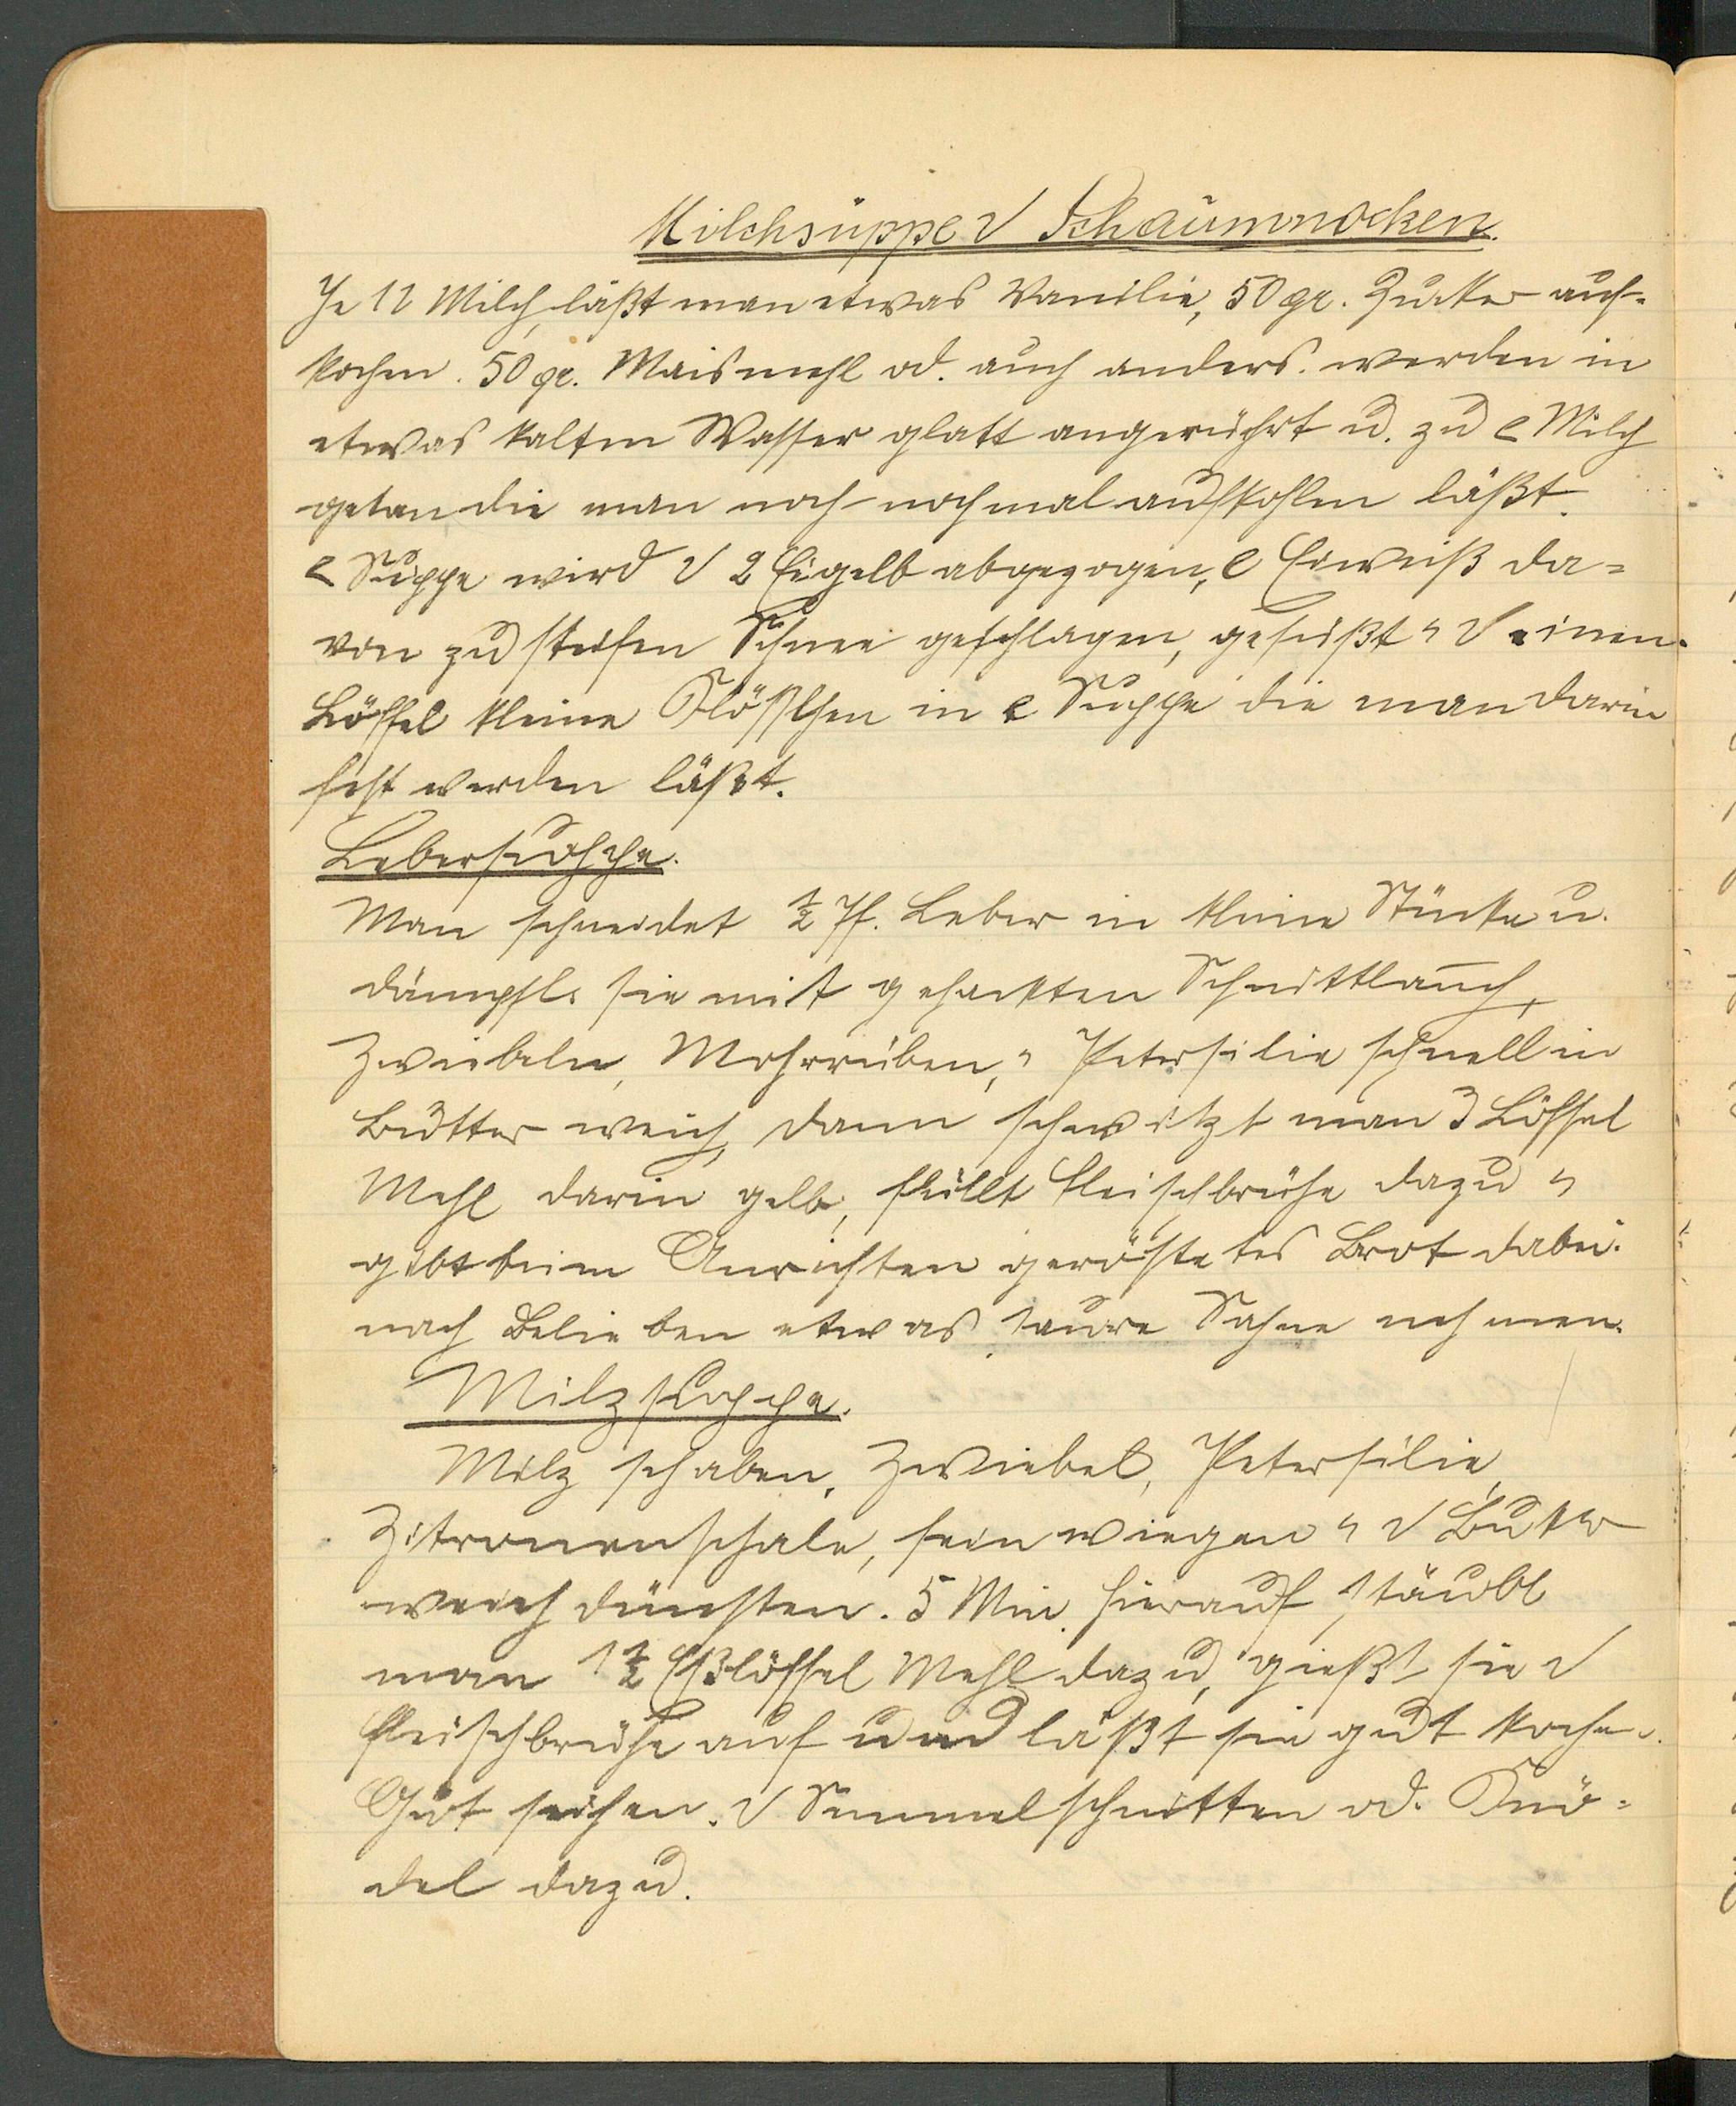 Milchsuppe √ Schaumnocken.
In 1 l Milch, läßt man etwas Vanilie, 50 gr. Zucker auf-
kochen. 50 gr. Maismehl od. auch anders. werden in
etwas kalten Wasser glatt angerührt u. zu e Milch
getan die man noch nochmal aufkochen läßt.
e Suppe wird √ 2 Eigelb abgezogen, e Eiweiß da=
von zu steifen Schnee geschlagen, gesüßt u √ einen
Löffel kleine Klößchen in e Suppe die man darin
fest werden läßt.
Lebersuppe.
Man schneidet ½ Pf. Leber in kleine Stücke u.
dämpft sie mit gehackten Schnittlauch,
Zwiebeln, Mohrrüben, u Petersilie schnell in
Butter weich, dann schwitzt man 3 Löffel
Mehl darin gelb, füllt Fleischbrühe dazu u
gibt beim Anrichten geröstetes Brot dabei.
nach Belieben etwas saure Sahne nehmen.
Milzsuppe.
Milz schaben, Zwiebel, Petersilie,
Zitronenschale, fein wiegen u √ Butter
weich dünsten. 5 Min. hierauf stäubt
man 1½ Eßlöffel Mehl dazu, gießt sie √
Fleischbrühe auf und läßt sie gut kochen.
Gut seihen. √ Semmelschnitten od. Knö=
del dazu.